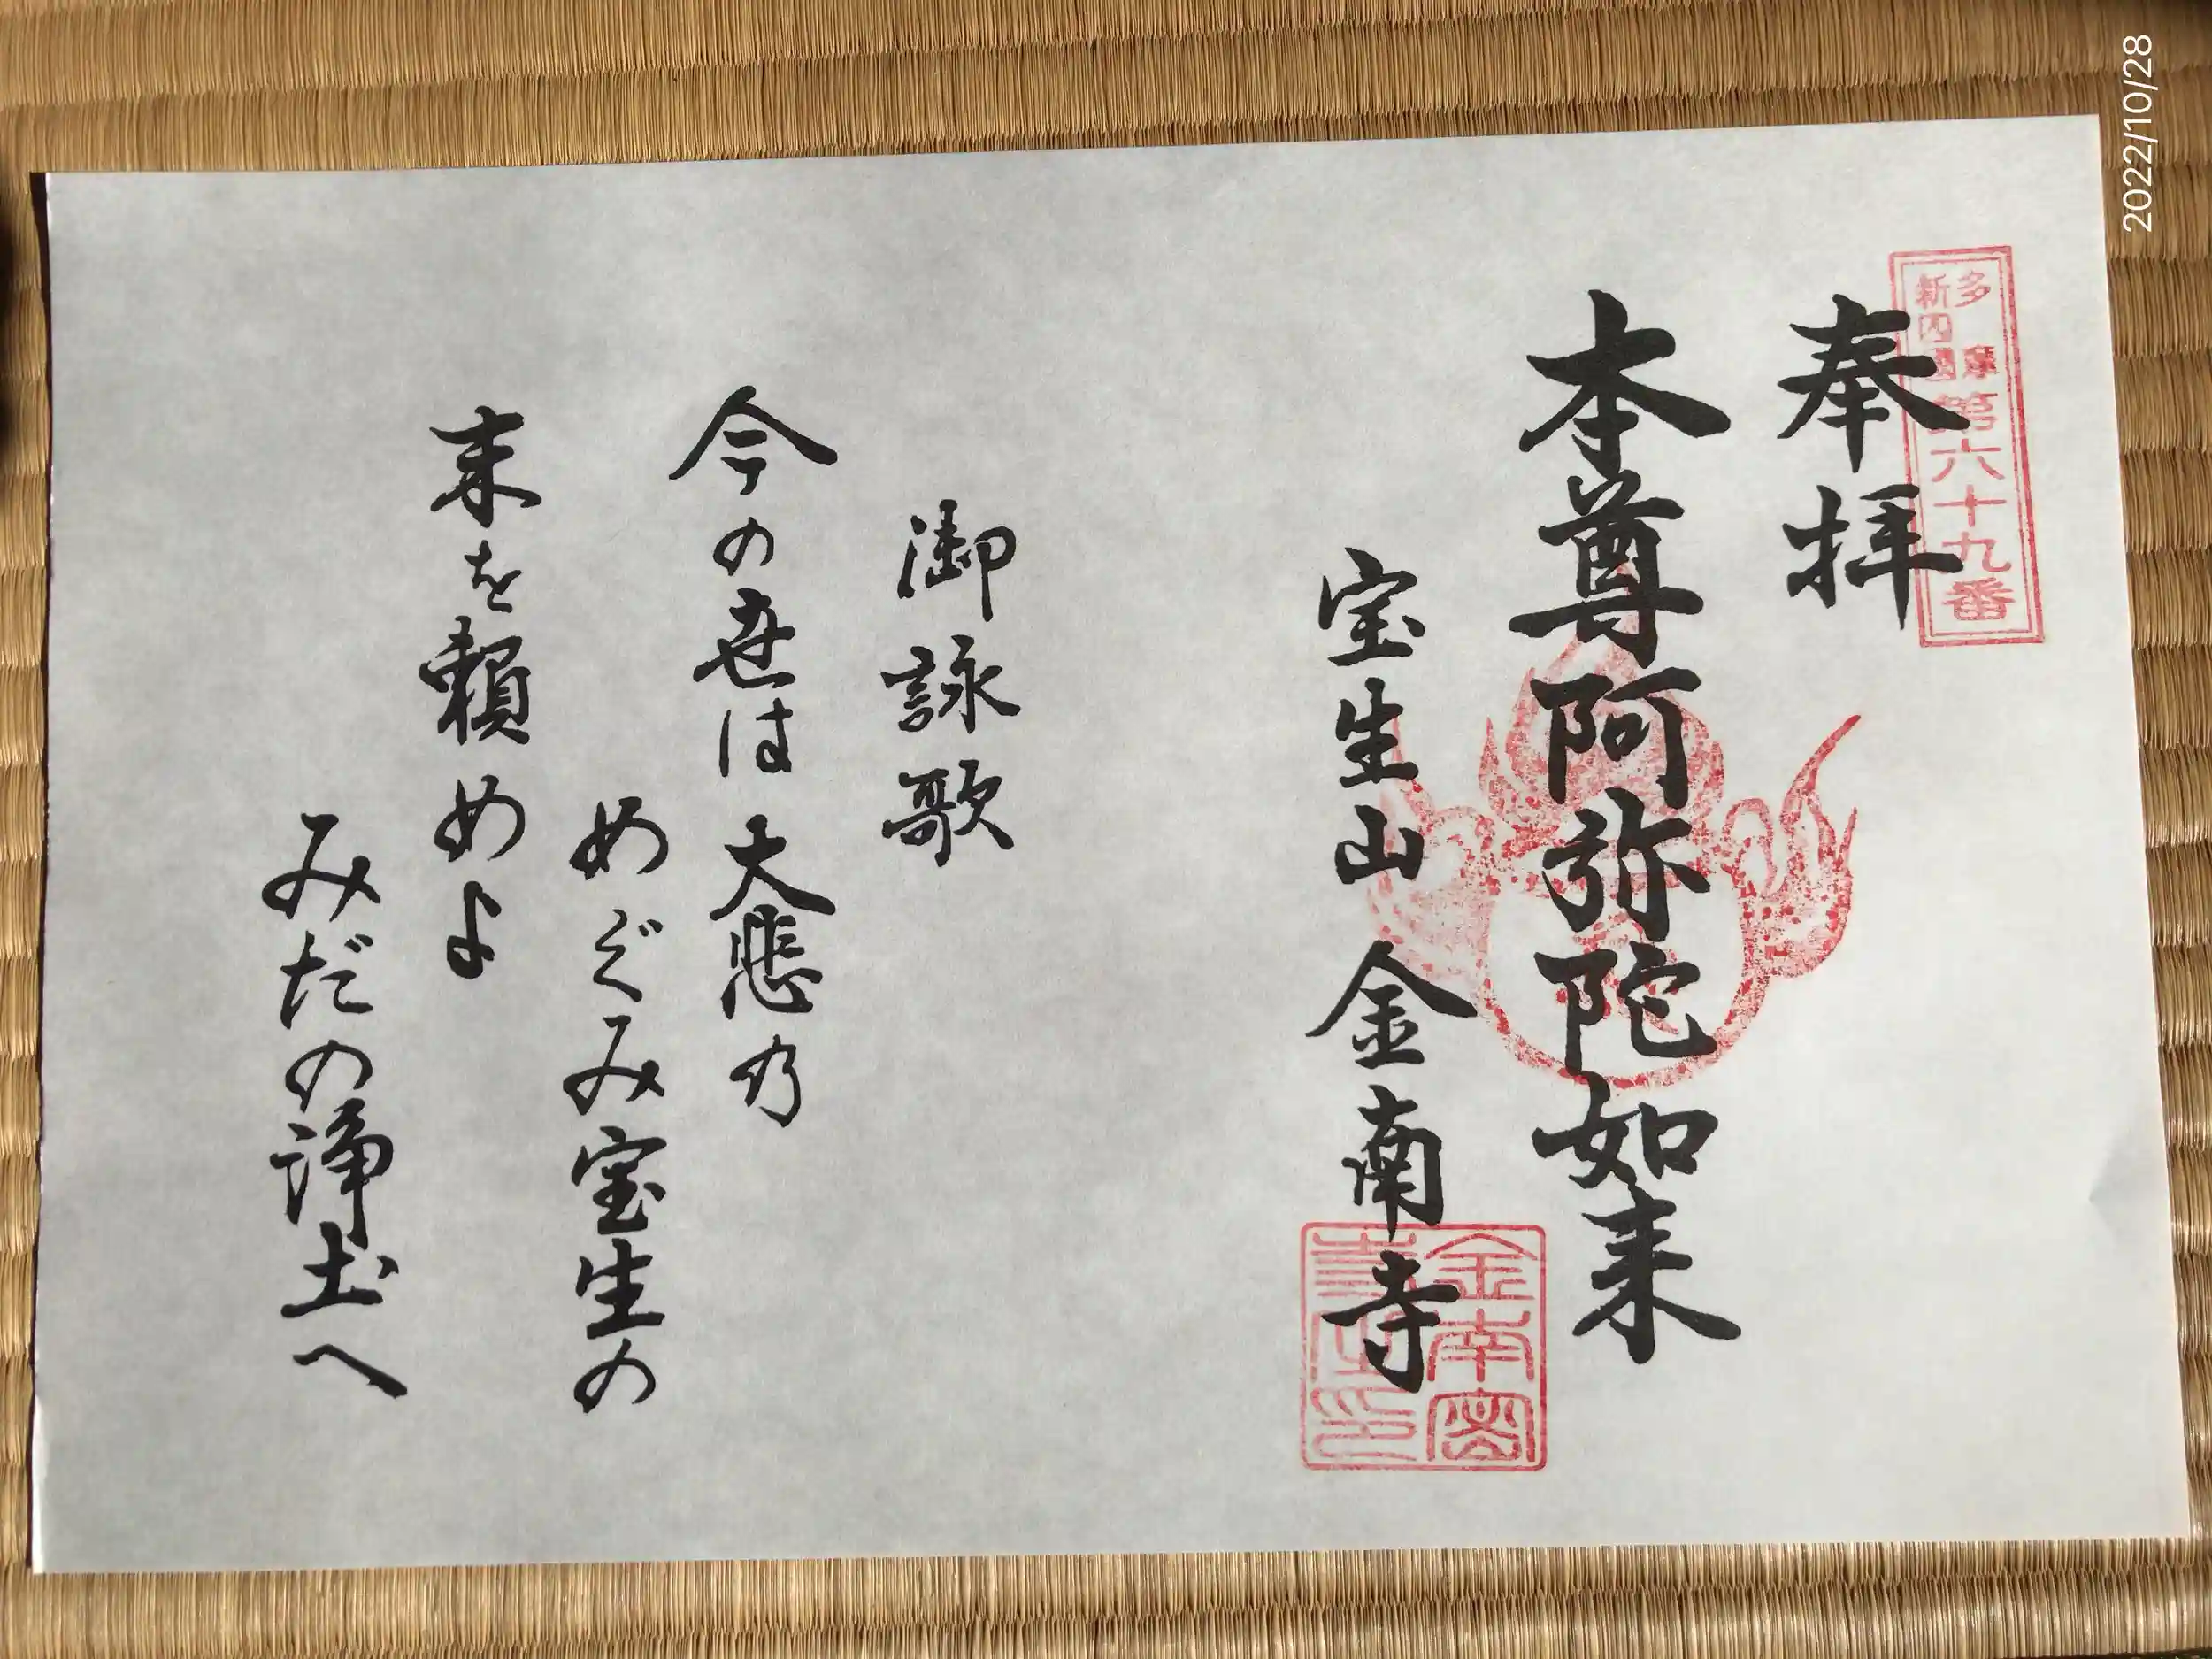 多摩
新四國
第六十九番
奉拝
本尊阿弥陀如来
宝生山 金南寺
御詠歌
今の世は大悲の
めぐみ宝生の
来を頼めよ
みだの浄土へ
2022/10/28